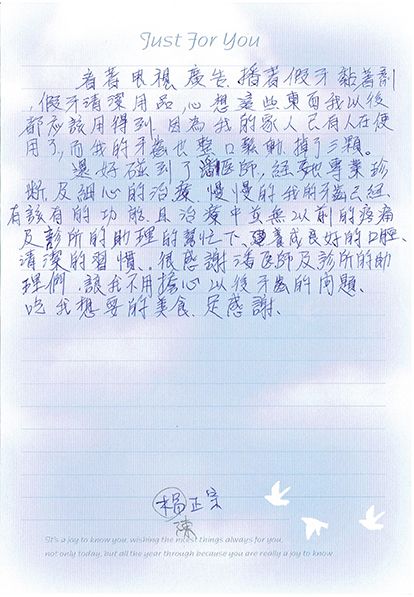 Just For You
看著電視廣告.播著假牙黏著劑
,假牙清潔用品,心想這些東西我以後
都應該用得到.因為我的家人已有人在使
用了,而我的牙齒也整口鬆動.掉了三顆。
還好碰到了潘医師,經她專業診
斷.及細心的治療.慢慢的我的牙齒已經
有該有的功能.且治療中並無以前的疼痛
及診所的助理的幫忙下、養成良好的口腔、
清潔的習慣。很感謝潘医師及診所的助
理們,讓我不用擔心以後牙齒的問題、
吃我想要的美食.足感謝、
楊正宗
陳
It's a joy to know you, wishing the nicest things always for you,
not only today, but all the year through because you are really a joy to know